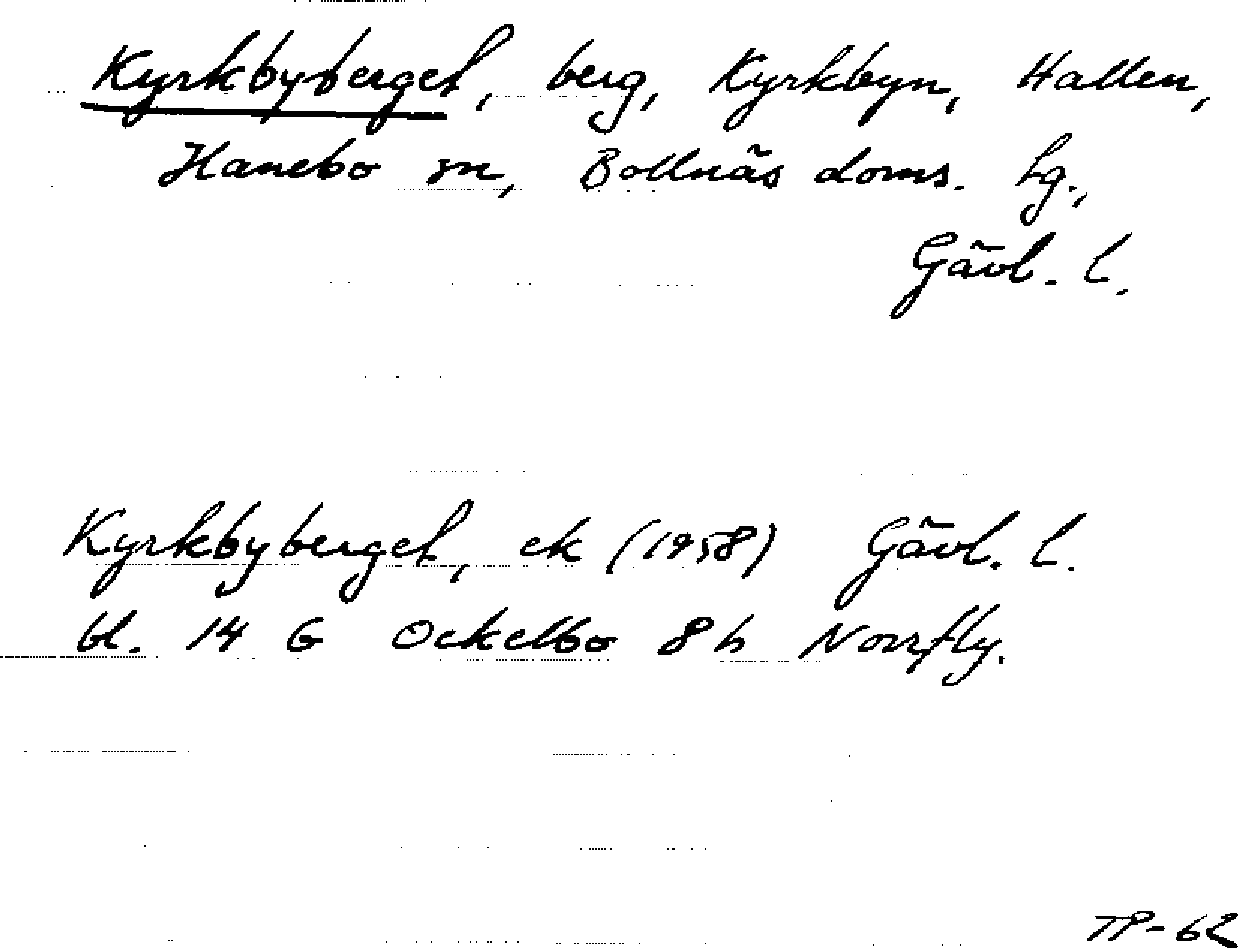 Kyrkbyberget, berg, Kyrkbyn, Hallen,
Hanebo sn, Bollnäs doms. hg.,
Gävl. l.
Kyrkbyberget, ek (1958) Gävl. l.
bl. 14 G Ockelbo 8 h Norrfly.
TP-62